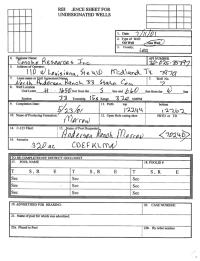 ENCE SHEET FOR
UNDESIGNATED WELLS
1. Date: 7/2/01
2. Type of Well
Oil Well Gas Well
3. County:
Lea
4. Operator Name
Concho Resources Inc.
API NUMBER
5. Address of Operator
110 W Louisiana, Ste 410 Midland, Tx 79701
6. Lease name or Unit Agreement Name
Anderson Ranch 33 State Com
7. Well No.
2
8. Well Location
Unit Letter H 1650 feet from the line and 660 feet from the line
Section 33 Township 15S Range 32E NMPM
9. Completion Date
5/23/01
11. Perfs top bottom
12244 12262
10. Name of Producing Formation(s)
Morrow
12. Open Hole casing shoe PBTD or TD
13. C-123 Filed 14. Name of Pool Requested
Anderson Ranch Morrow
15. Acreage
320 ac CDEFKLMN
TO BE COMPLETED BY DISTRICT GEOLOGIST
17. POOL NAME 18. POOL ID #
T S, R E T S, R E
Sec Sec
Sec Sec
Sec Sec
19. ADVERTISED FOR HEARING 20. CASE NUMBER
21. Name of pool for which was advertised.
22a. Placed in Pool 22b. By order number